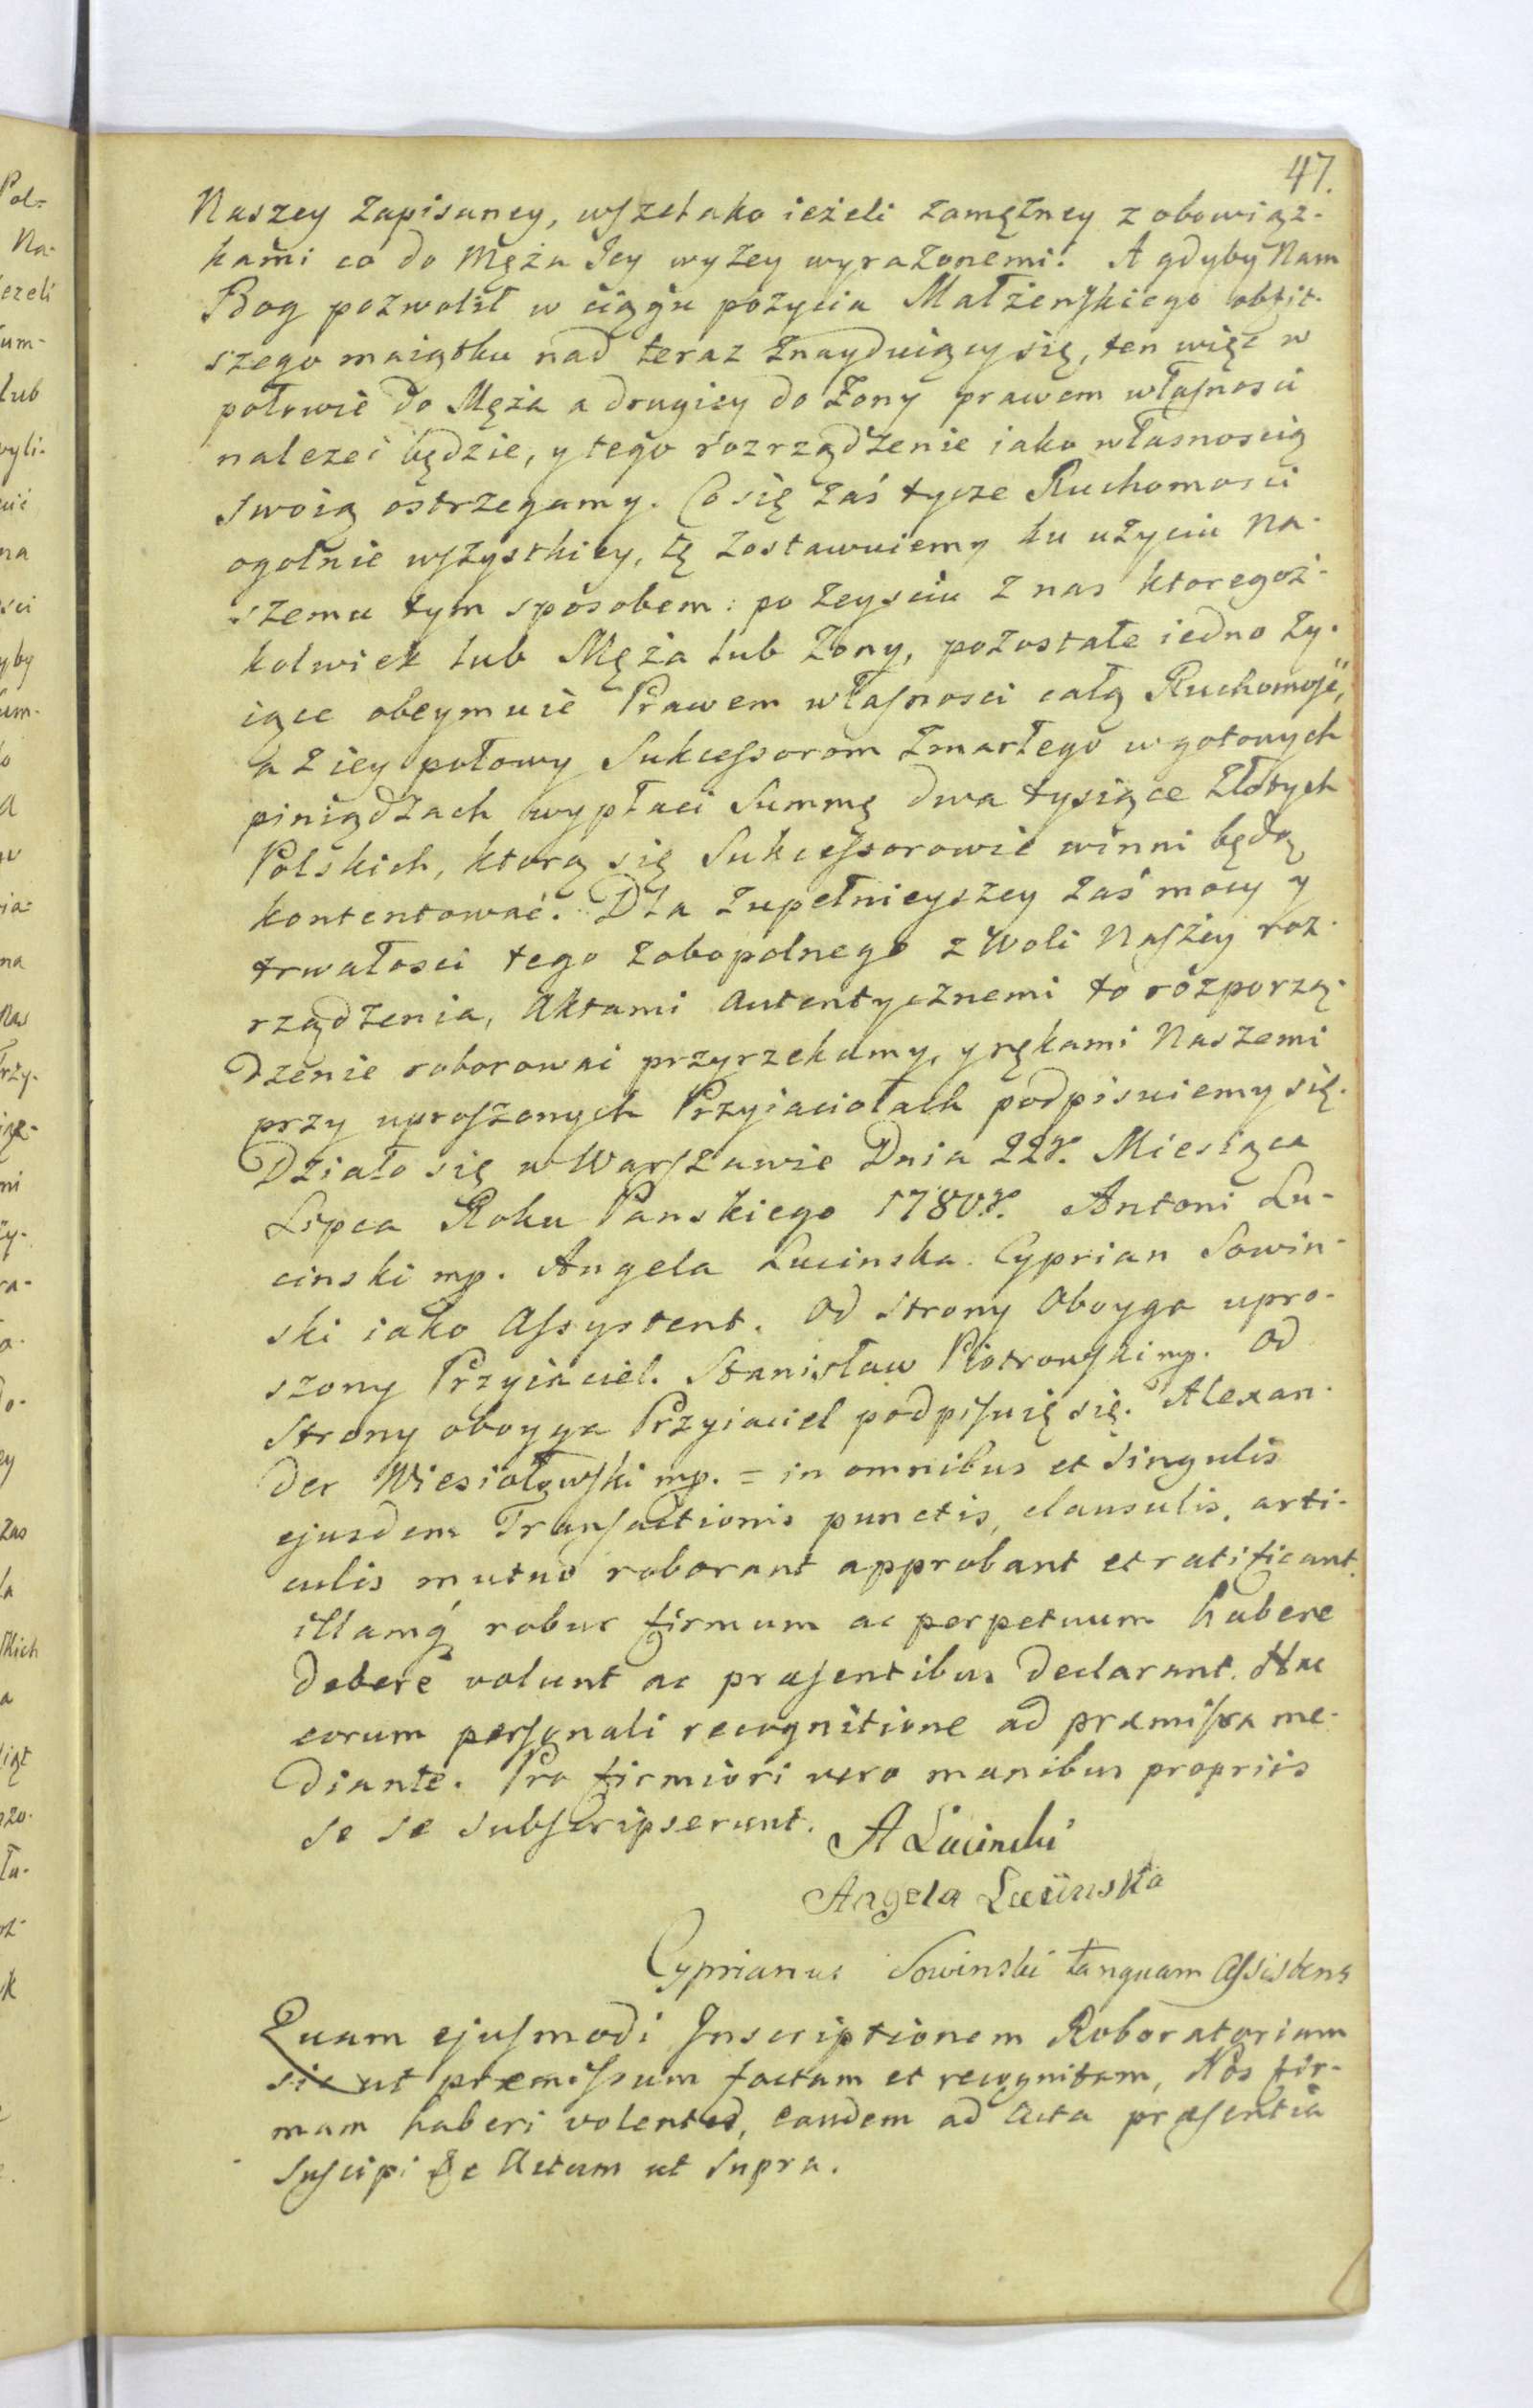 47.
Naszey zapisaney, wszelako ieżeli zamężney z obowiąz-
kami co do Męża Jey wyżey wyrażonemi. A gdyby Nam
Bog pozwolił w ciągu pożycia Małżeńskiego obfit-
szego maiątku nad teraz znayduiący się, ten więc w
połowie do Męża a drugiey do Żony prawem własnosci
nalezeć będzie, y tego rozrządzenie iako własnoscią
swoią ostrzegamy. Co się zaś tycze Ruchomosci
ogołnie wszystkiey, tę zostawuiemy ku użyciu Na-
szemu tym sposobem: po zeysciu z nas ktoregoż-
kolwiek lub Męża lub Żony, pozostałe iedno ży-
iące obeymuie Prawem własnosci całą Ruchomość,
a z iey połowy Sukcessorom zmarłego w gotowych
piniądzach wypłaci Summę dwa tysiące Złotych
Polskich, ktorą się Sukcessorowie winni będą
kontentować. Dla zupełnieyszey zaś mocy y
trwałosci tego zobopolnego z Woli Naszey roz-
rządzenia, Aktami Autentycznemi to rozporzą-
dzenie roborować przyrzekamy, y rękami Naszemi
przy uproszonych Przyiaciołach podpisuiemy się.
Działo się w Warszawie Dnia 22g. Miesiąca
Lipca Roku Panskiego 1780g. Antoni Lu-
cinski mp. Angela Lucinska. Cyprian Sowin-
ski iako Assystent. Od Strony Oboyga upro-
szony Przyiaciel. Stanisław Piotrowski mp. Od
Strony oboyga Przyiaciel podpisuię się. Alexan-
der Wiesiołowski mp. = in omnibus et singulis
ejusdem Transactionis punctis, clausulis, arti-
culis mutuo roborant approbant et ratificant.
illamq́ robur firmum ac perpetuum habere
debere volunt ac præsentibus declarant. Hac
eorum personali recognitione ad præmissa me-
diante. Pro firmiori vero manibus propriis
se se subscripserunt. A Lucinski
Angela Lucinska
Cyprianus Sowinski tanquam Assistens
Quam ejusmodi Inscriptionem Roboratoriam
sic ut præmissum factam et recognitam, Nos fir-
mam haberi volentes, eandem ad Acta præsentia
suscipi &c Actum ut supra.